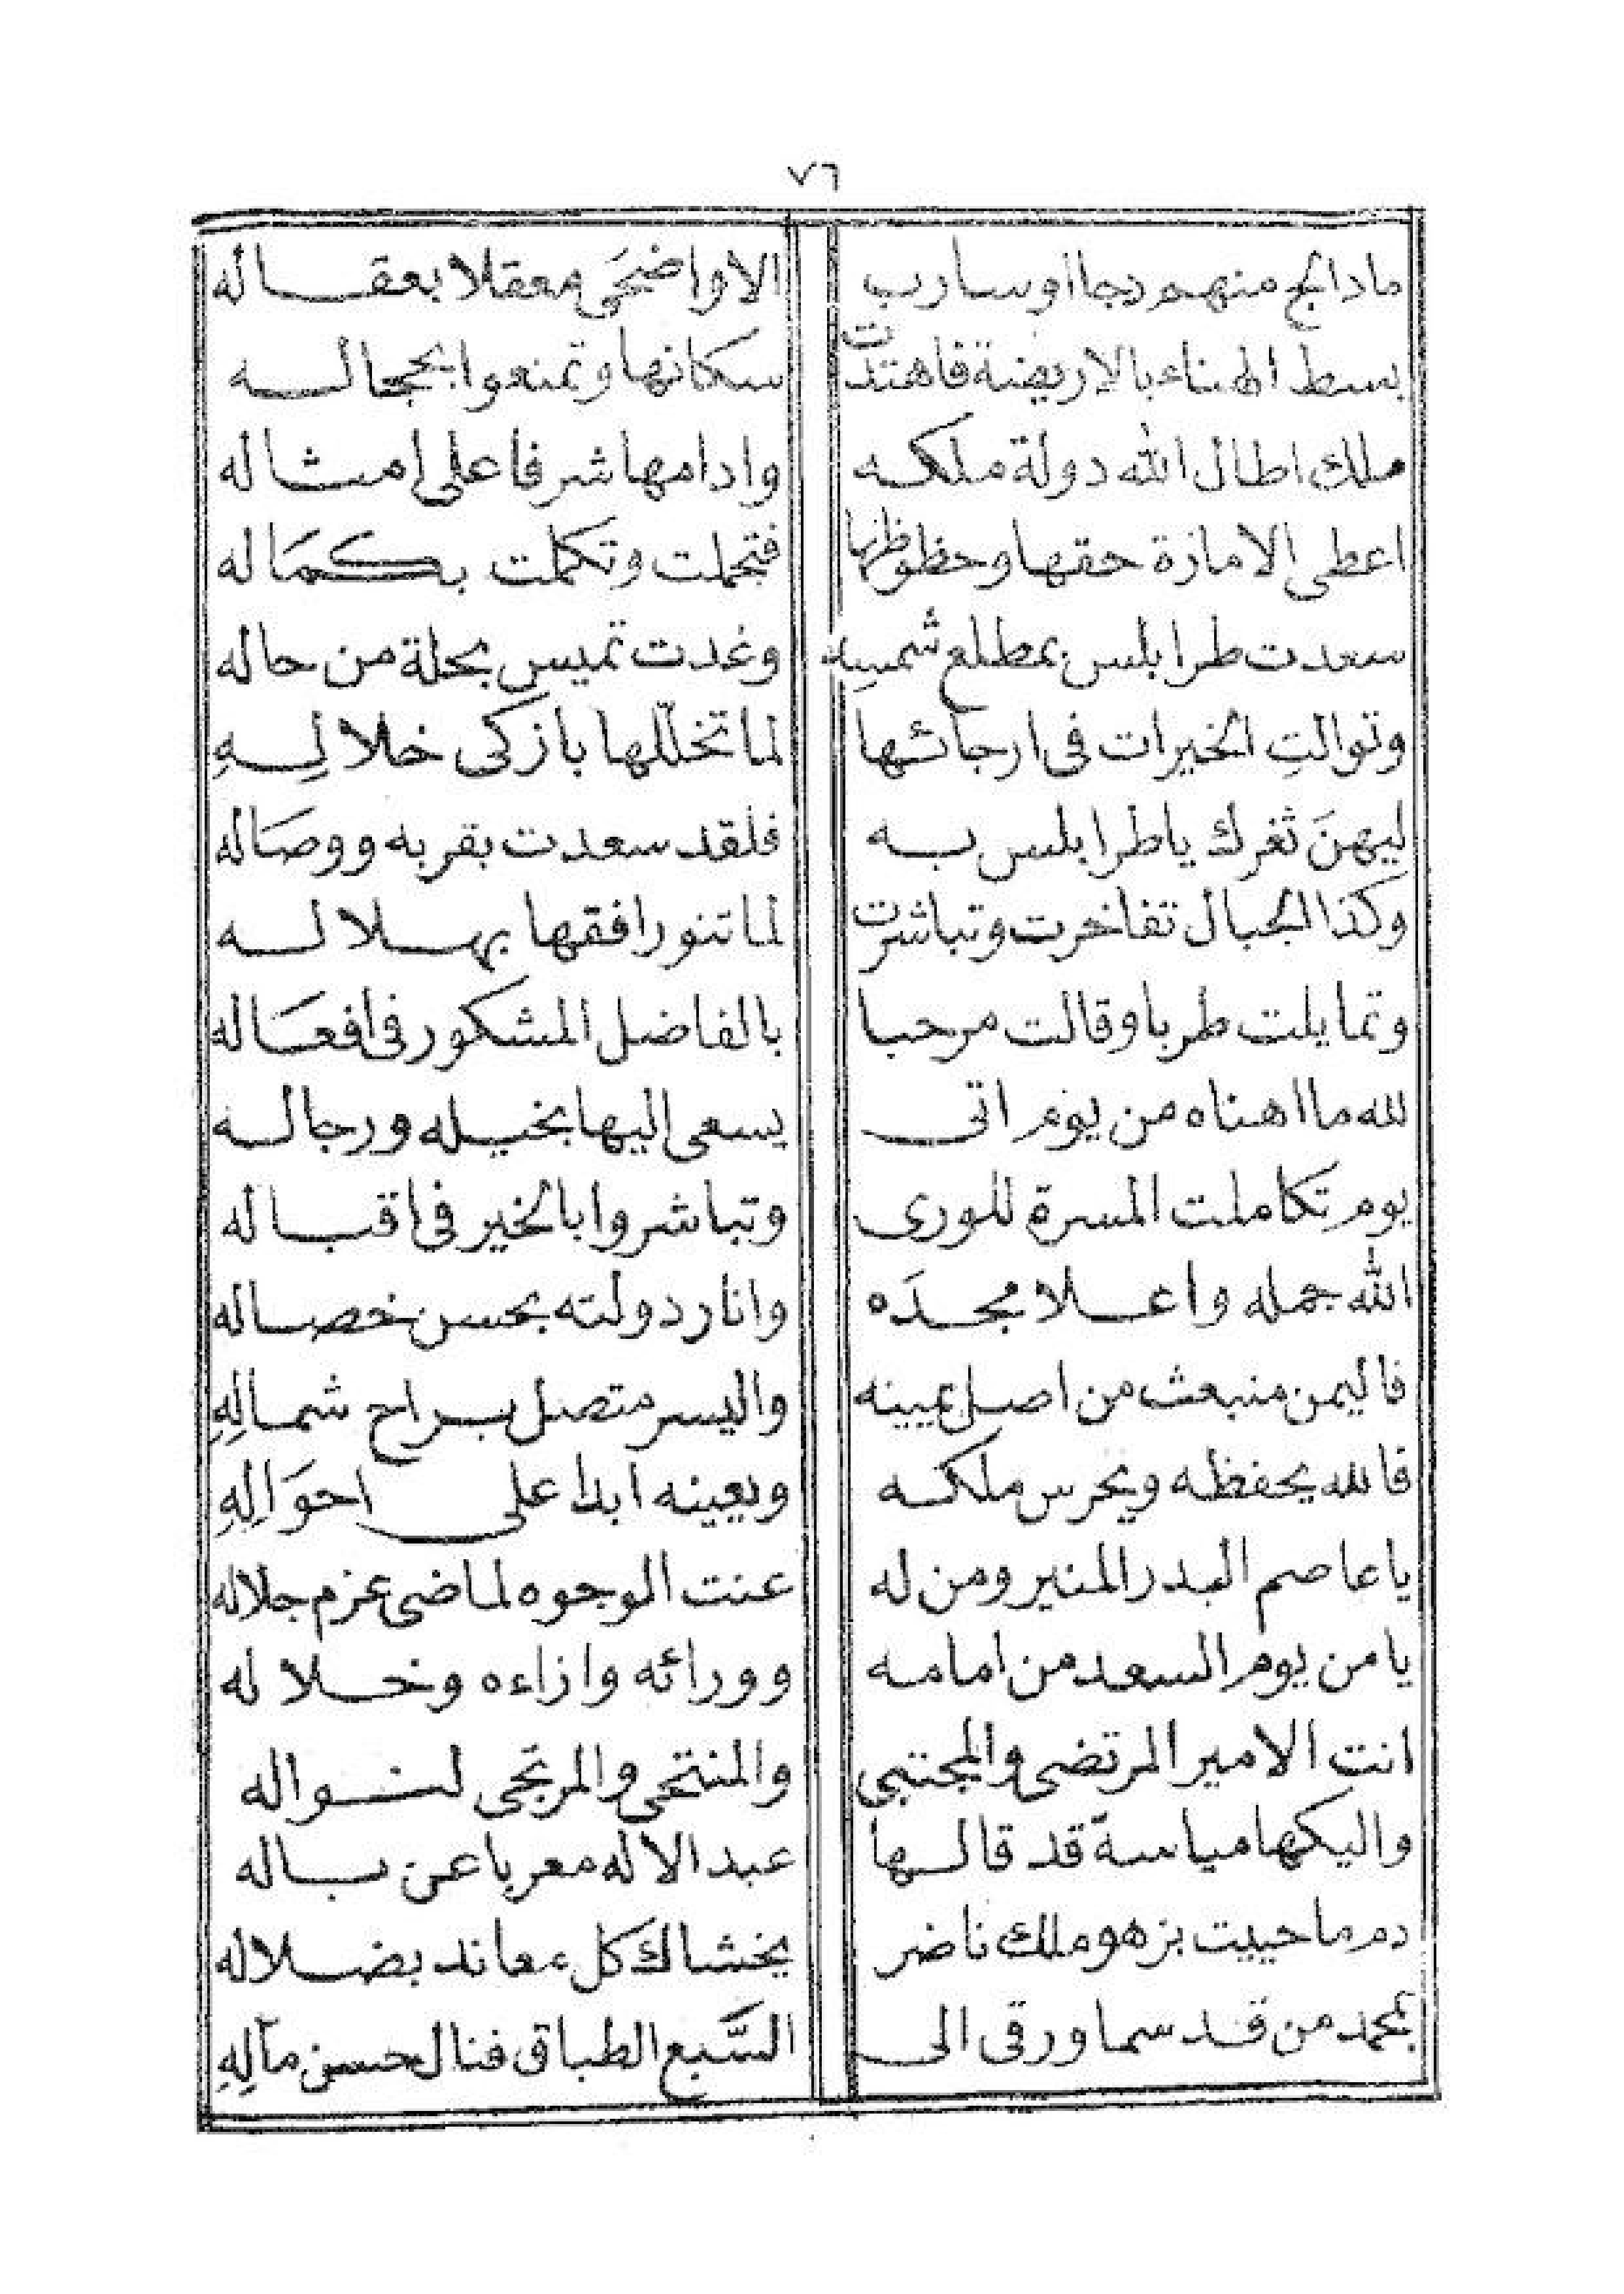 ٧٦
مادالج منهم دجا اوسارب الاواضحَى معقلا بعقاله
بسط الهناء بالاريضة فاهتدت سكانها وتمنعوا بحجاله
ملك اطال الله دولة ملكه وادامها شرفا على امثاله
اعطى الامارة حقها وحظوظها فتجملت وتكملت بكمَاله
سعدت طرابلس بمطلع شمسِه وغدت تميس بحلة من حاله
وتوالتِ الخيرات فى ارجائها لما تخلّلها بازكى خلالِهِ
ليهنَ ثغرك ياطرابلس به فلقد سعدت بقربه ووصَاله
وكذا الجبال تفاخرت وتباشرت لما تنور افقها بهلاله
وتمايلت طربا وقالت مرحبا بالفاضل المشكور فى افعَاله
لله ما اهناه من يوم اتى يسعى اليها بخيله ورجاله
يوم تكاملت المسرة للورى وتباشروا بالخير فى اقباله
الله جمله واعلا مجدَه وانار دولته بحسن خصاله
فاليمن منبعث من اصل يمينه واليسر متصل براح شمالِهِ
فالله يحفظه ويحرس ملكه ويعينه ابدا على احوَالِهِ
ياعاصم البدر المنير ومن له عنت الوجوه لماضى عزم جلاله
يامن يوم السعد من امامه وورائه وازاءه وخلاله
انت الامير المرتضى والمجتبى والمنتحى والمرتجى لنواله
واليكها مياسة قد قالها عبد الاله معربا عن باله
دم ماحييت بزهو ملك ناضر يخشاك كل معاند بضلاله
بمحمد من قد سما ورقى الى السَّبع الطباق فنال حسن مآلِهِ